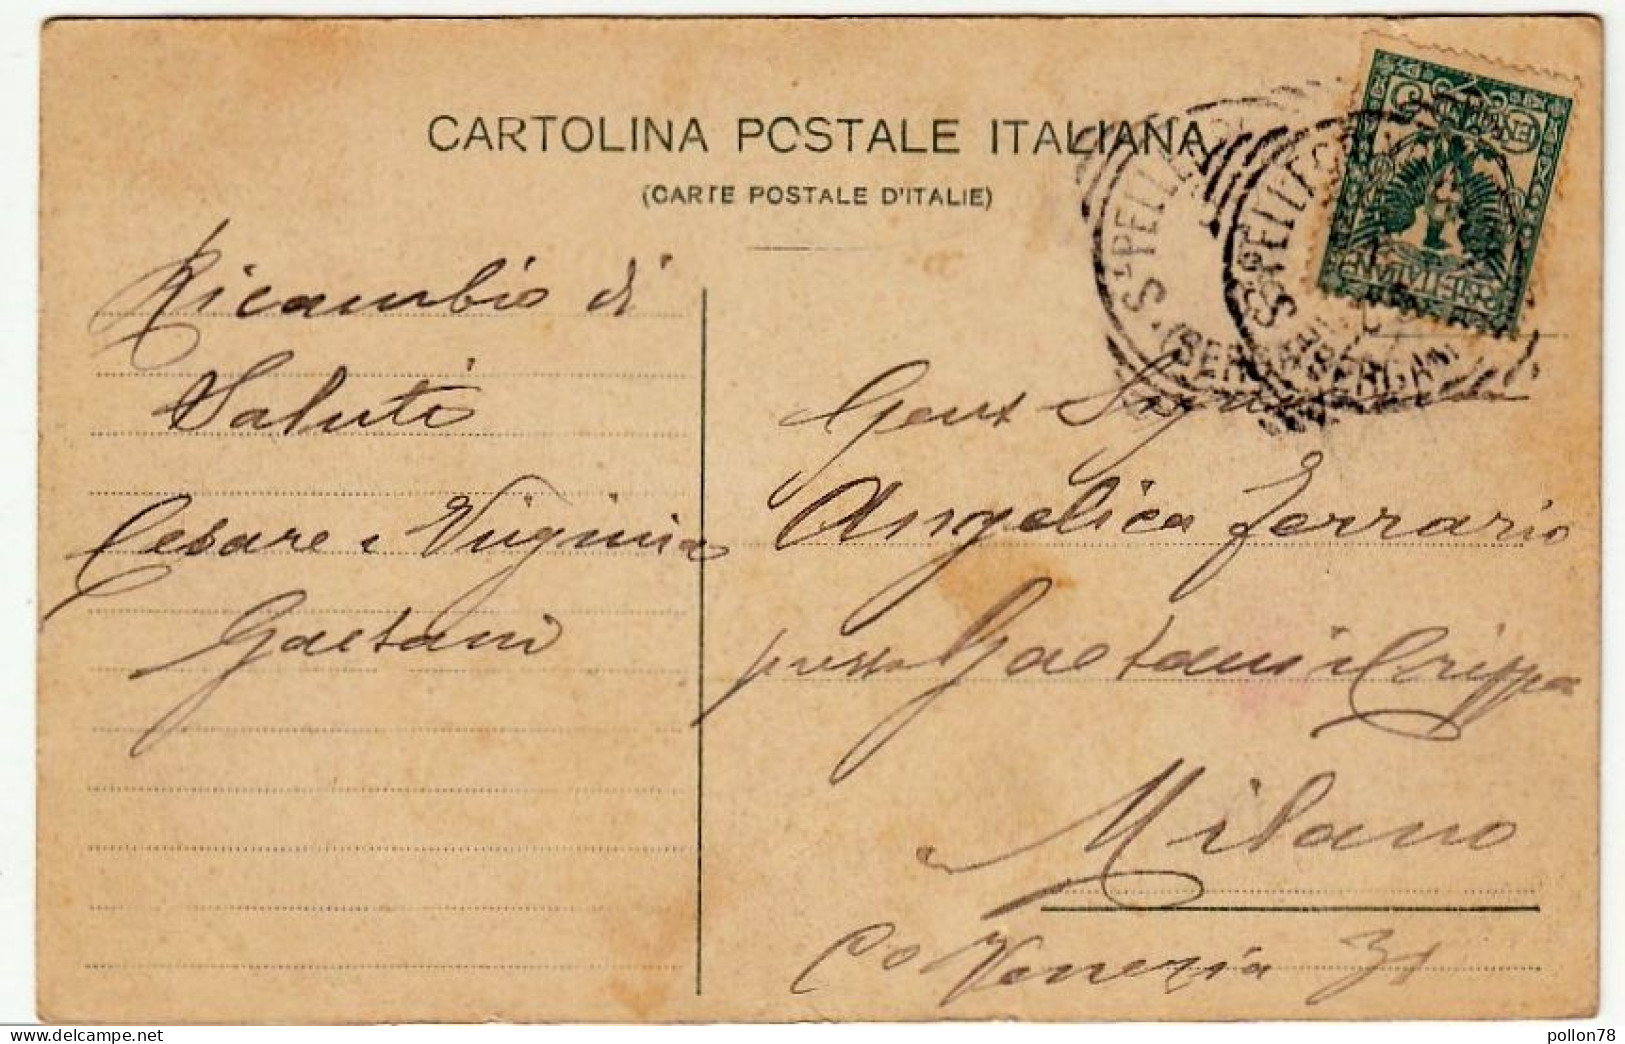 CARTOLINA POSTALE ITALIANA
(CARTE POSTALE D'ITALIE)
Ricambio di
Saluti
Cesare e Virginia
Gaetani
S. PELLEGRINO
(BERGAMO)
Gent Signorina
Angelica Ferrario
presso Gaetani e Crippa
Milano
Co Venezia 31
delcampe.net
pollon78